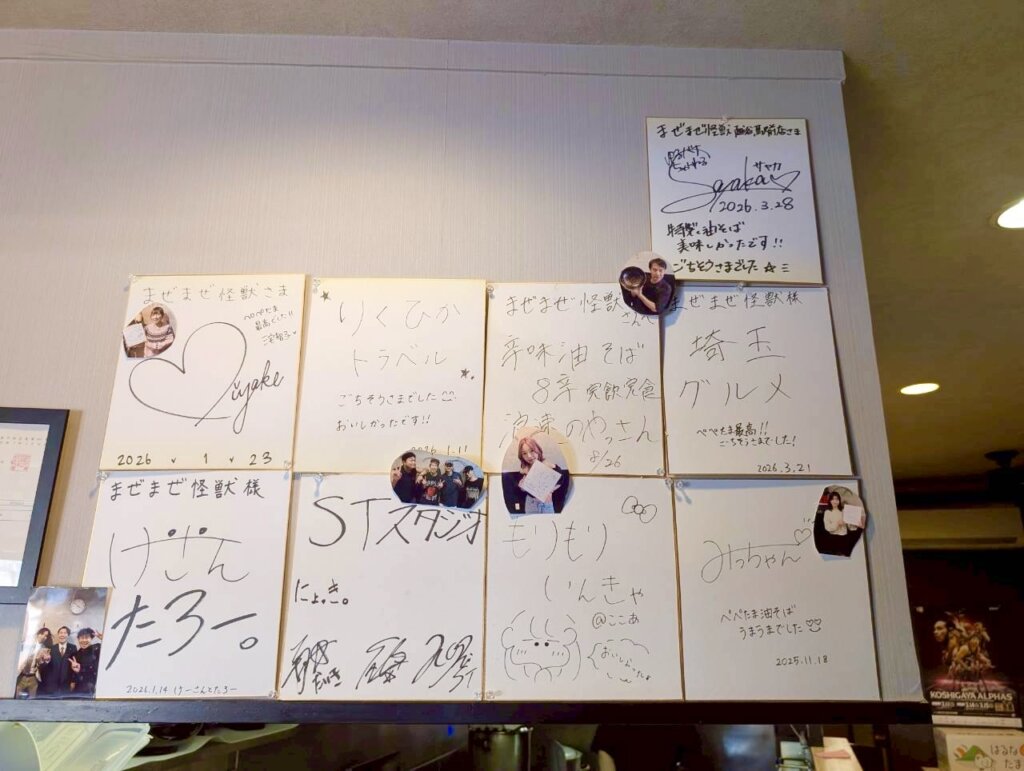 まぜまぜ怪獣 越谷駅前店さま
サヤカ
Sayaka
2026.3.28
特製油そば
美味しかったです!!
ごちそうさまでした☆
まぜまぜ怪獣さま
ペペたま
最高でした!!
Miyake
2026 1 23
りくひか
トラベル
ごちそうさまでした
おいしかったです!!
まぜまぜ怪獣
さんへ
辛味油そば
8辛 完飲完食
のやっさん
8/26
まぜまぜ怪獣様
埼玉
グルメ
ペペたま最高!!
ごちそうさまでした!
2026.3.21
まぜまぜ怪獣様
けーさん
たろー。
2026.1.14 けーさんとたろー
STスタジオ
にょっき。
もりもり
いんきゃ
@ここあ
みっちゃん
ペペたま油そば
うまうまでした♡♡
2025.11.18
KOSHIGAYA ALPHAS
はるな
たま